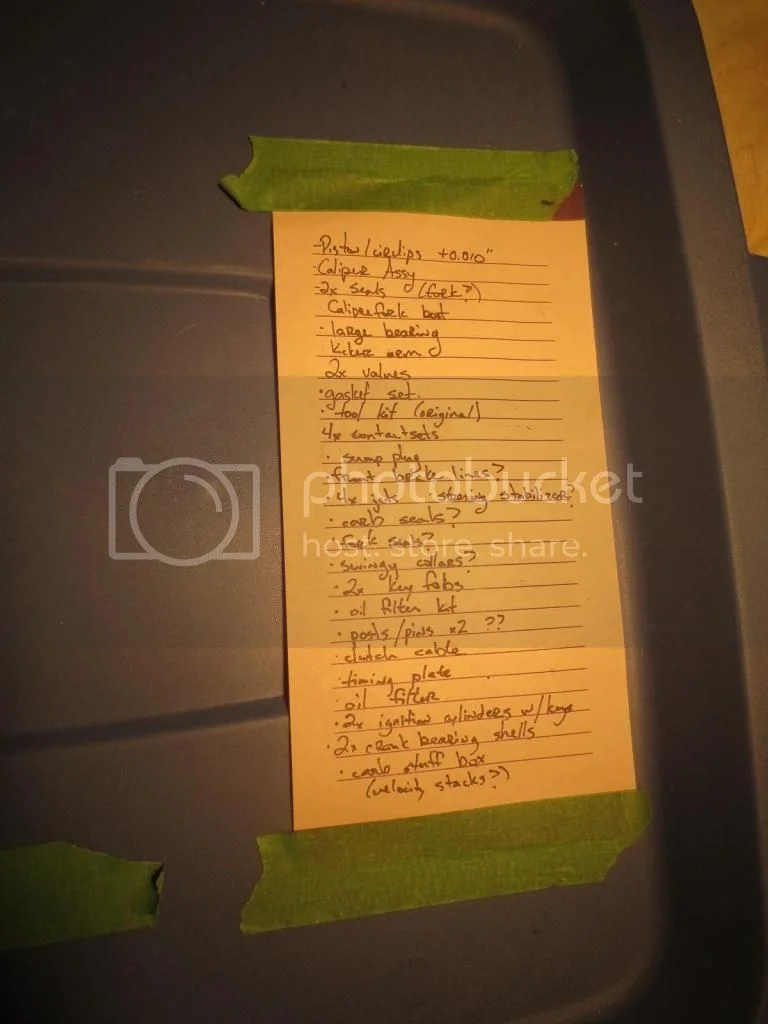 -Piston/circlips +0.010"
-Caliper Assy
-2x seals (fork?)
Caliper fork boot
- large bearing
kicker arm
2x valves
• gasket set.
• tool kit (original)
4x contact sets
• sump plug
• front brake lines?
• 4x jets • steering stabilizer?
• carb seals?
• fork seals?
• swingy collars?
• 2x key fobs
• oil filter kit
• posts/pins x2 ??
• clutch cable
timing plate
• oil filter
• 2x ignition cylinders w/keys
• 2x crank bearing shells
• carb stuff box
(velocity stacks?)
photobucket
host. store. share.